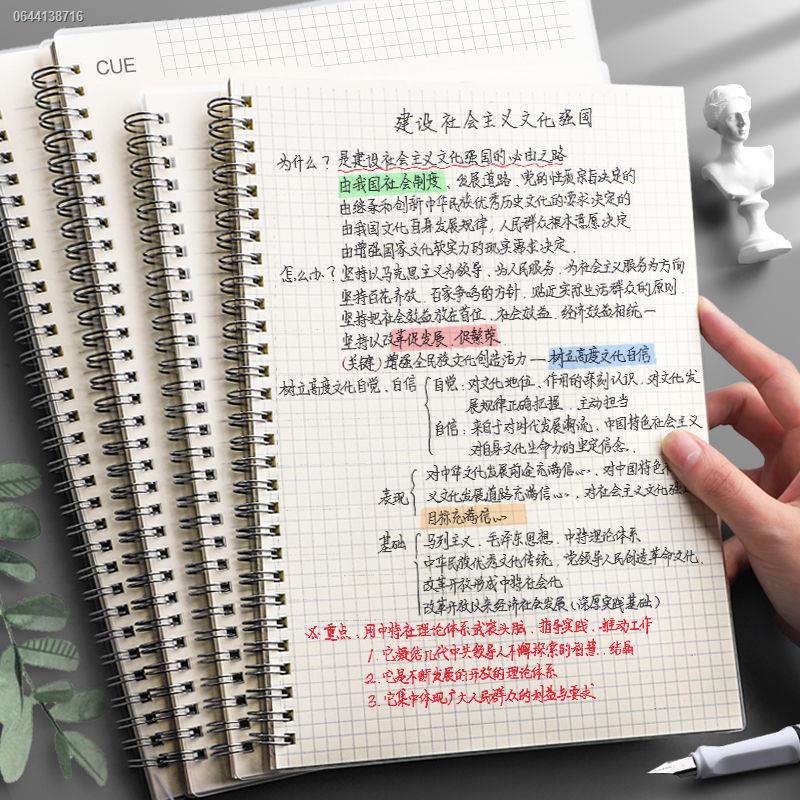 0644138716
CUE
建设社会主义文化强国
为什么？是建设社会主义文化强国的必由之路
由我国社会制度、发展道路、党的性质宗旨决定的
由继承和创新中华民族优秀历史文化的要求决定的
由我国文化自身发展规律，人民群众根本意愿决定
由增强国家文化软实力的现实要求决定．
怎么办？坚持以马克思主义为领导，为人民服务，为社会主义服务为方向
坚持百花齐放、百家争鸣的方针，贴近实际生活群众的原则．
坚持把社会效益放在首位，社会效益、经济效益相统一
坚持以改革促发展、促繁荣
(关键) 增强全民族文化创造活力 — 树立高度文化自信
树立高度文化自觉、自信
自觉：对文化地位、作用的深刻认识，对文化发
展规律正确把握、主动担当
自信：来自于对时代发展潮流，中国特色社会主义
对自身文化生命力的坚定信念．
表现
对中华文化发展前途充满信心，对中国特色
义文化发展道路充满信心，对社会主义文化强
目标充满信心
基础
马列主义、毛泽东思想、中特理论体系
中华民族优秀文化传统，党领导人民创造革命文化，
改革开放形成中特社会化
改革开放以来经济社会发展(深厚实践基础)
重点、用中特社理论体系武装头脑、指导实践、推动工作
1. 它凝结几代中共领导人不懈探索的智慧、结晶
2. 它是不断发展的开放的理论体系
3. 它集中体现广大人民群众的利益与要求